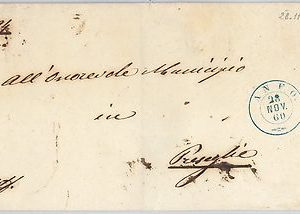 28.11
All'Onorevole Municipio
in
Preseglie
ANFO
28
NOV.
60